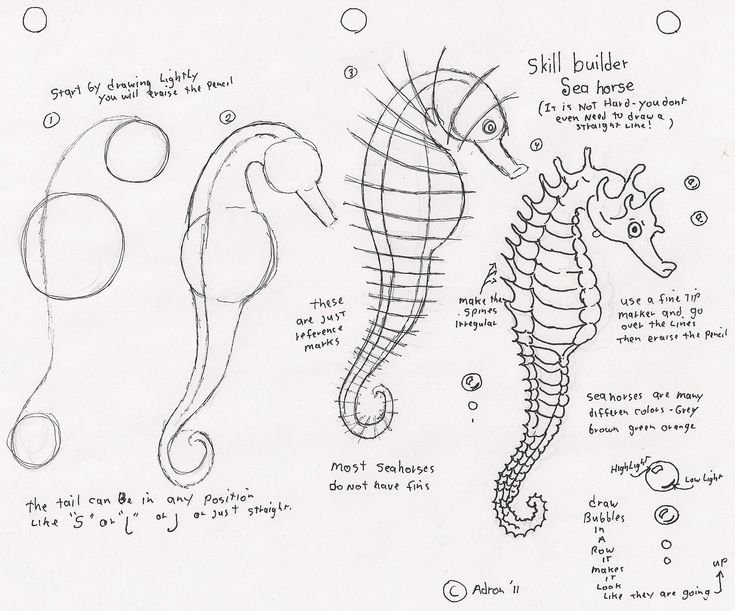 Start by drawing Lightly
you will eraise the pencil
1
2
3
Skill builder
Sea horse
(It is Not Hard-you dont
even Need to draw a
straight Line! )
4
these
are just
reference
marks
make the
spines
irregular
use a fine Tip
marker and go
over the Lines
Then eraise the Pencil
Seahorses are many
differen colors - Grey
brown green orange
Most Seahorses
do Not have fins
the tail can be in any position
Like "S" or "L" or J or Just straight.
HighLight
Low Light
draw
Bubbles
in
A
Row
IT
makes
IT
Look
Like they are going
UP
© Adron '11